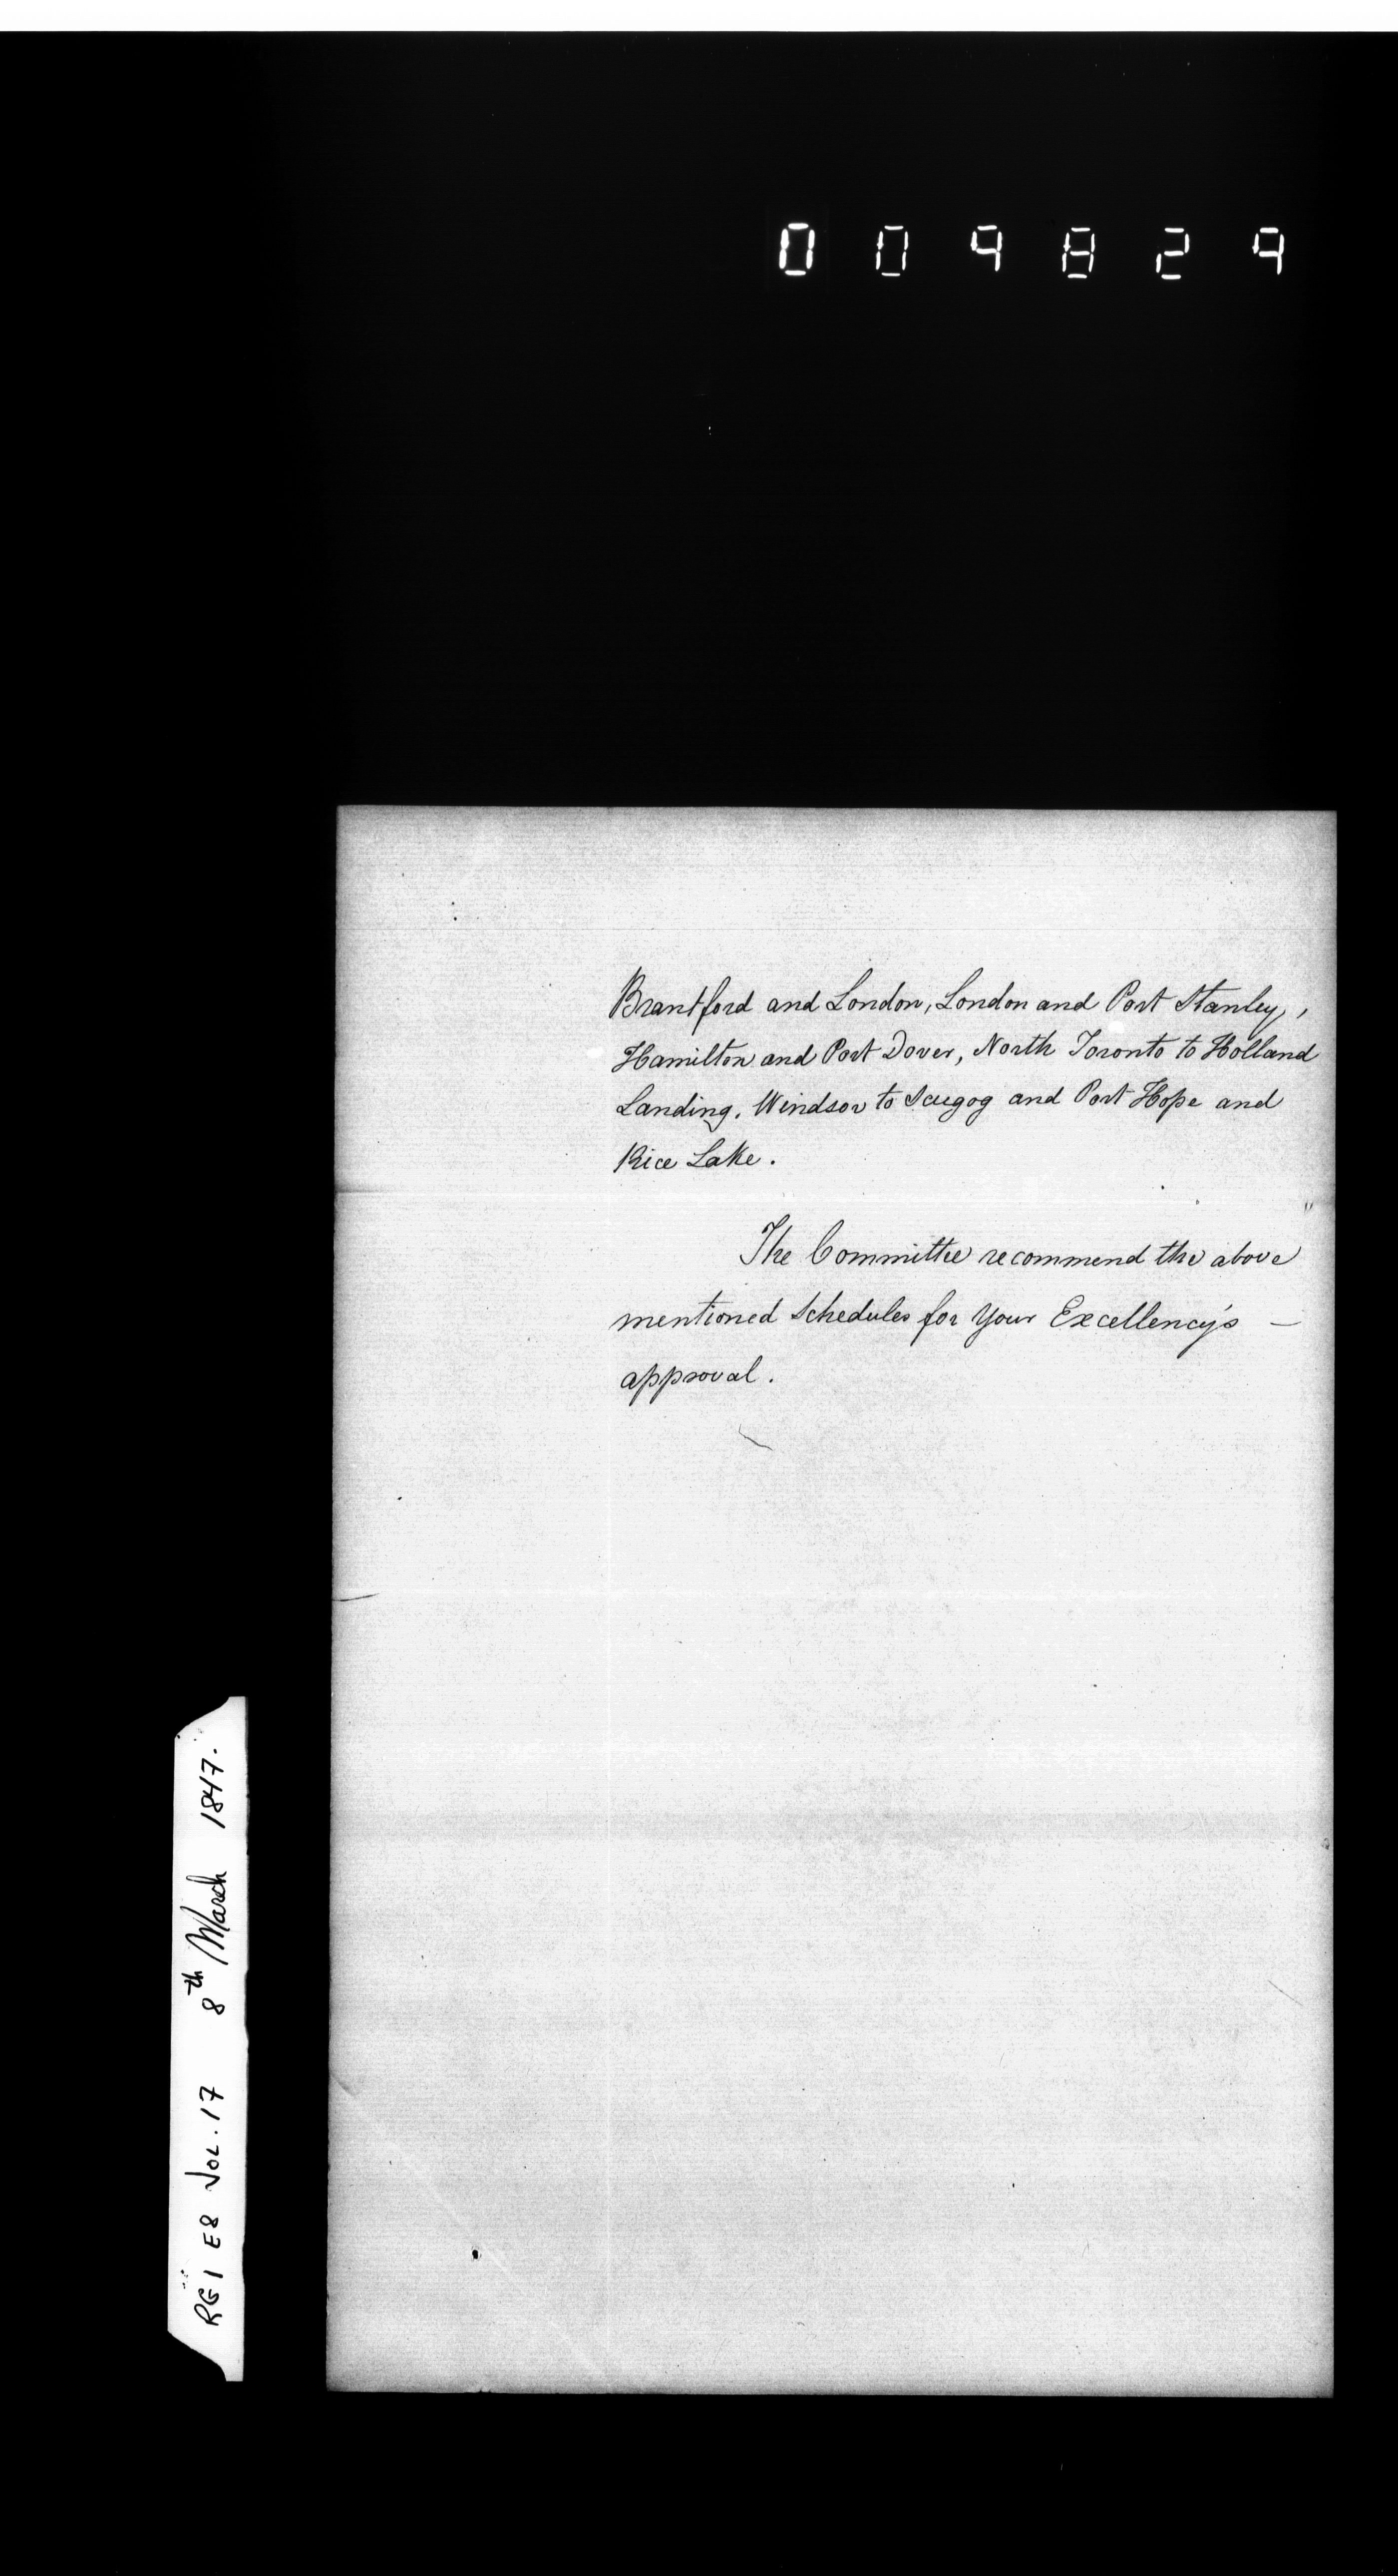 009829
Brantford and London, London and Port Stanley,
Hamilton and Port Dover, North Toronto to Holland
Landing, Windsor to Scugog and Port Hope and
Rice Lake.
The Committee recommend the above
mentioned Schedules for Your Excellency's —
approval.
RG1 E8 VOL. 17 8th March 1847.